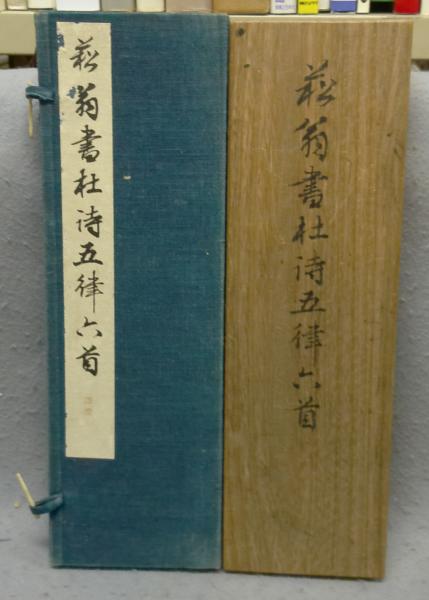 菘翁書杜詩五律六首
菘翁書杜詩五律六首